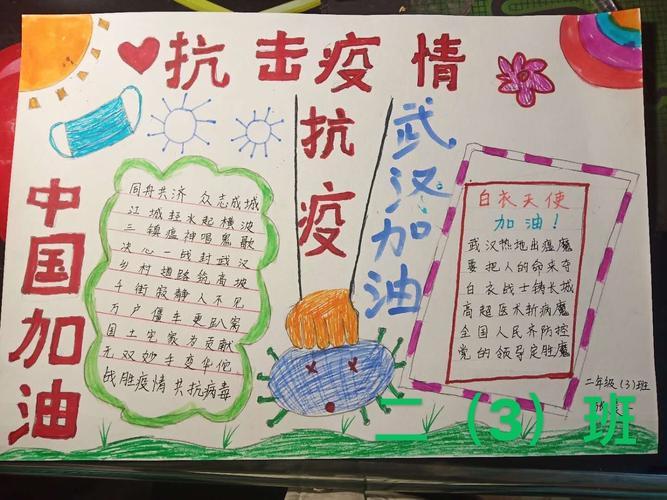 抗击疫情
中国加油
同舟共济 众志成城
江城起水起横波
三镇瘟神唱鬼歌
决心一战封武汉
乡村道路统高坡
千街寂静人不见
万户僵牛更趴窝
国土宅家为贡献
无双妙手变华佗
战胜疫情 共抗病毒
抗疫
武汉加油
白衣天使
加油!
武汉热地出瘟魔
要把人的命来夺
白衣战士铸长城
高超医术斩病魔
全国人民齐防控
党的领导定胜魔
二年级(3)班
二（3）班